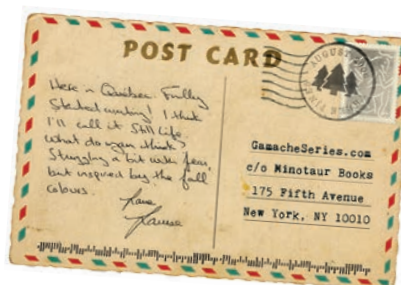 POST CARD
Here in Quebec. Finally
Started writing! I think
I'll call it Still Life.
What do you think?
Struggling a bit with fear,
but inspired by the fall
colours.
Louise
GamacheSeries.com
c/o Minotaur Books
175 Fifth Avenue
New York, NY 10010
AUGUST